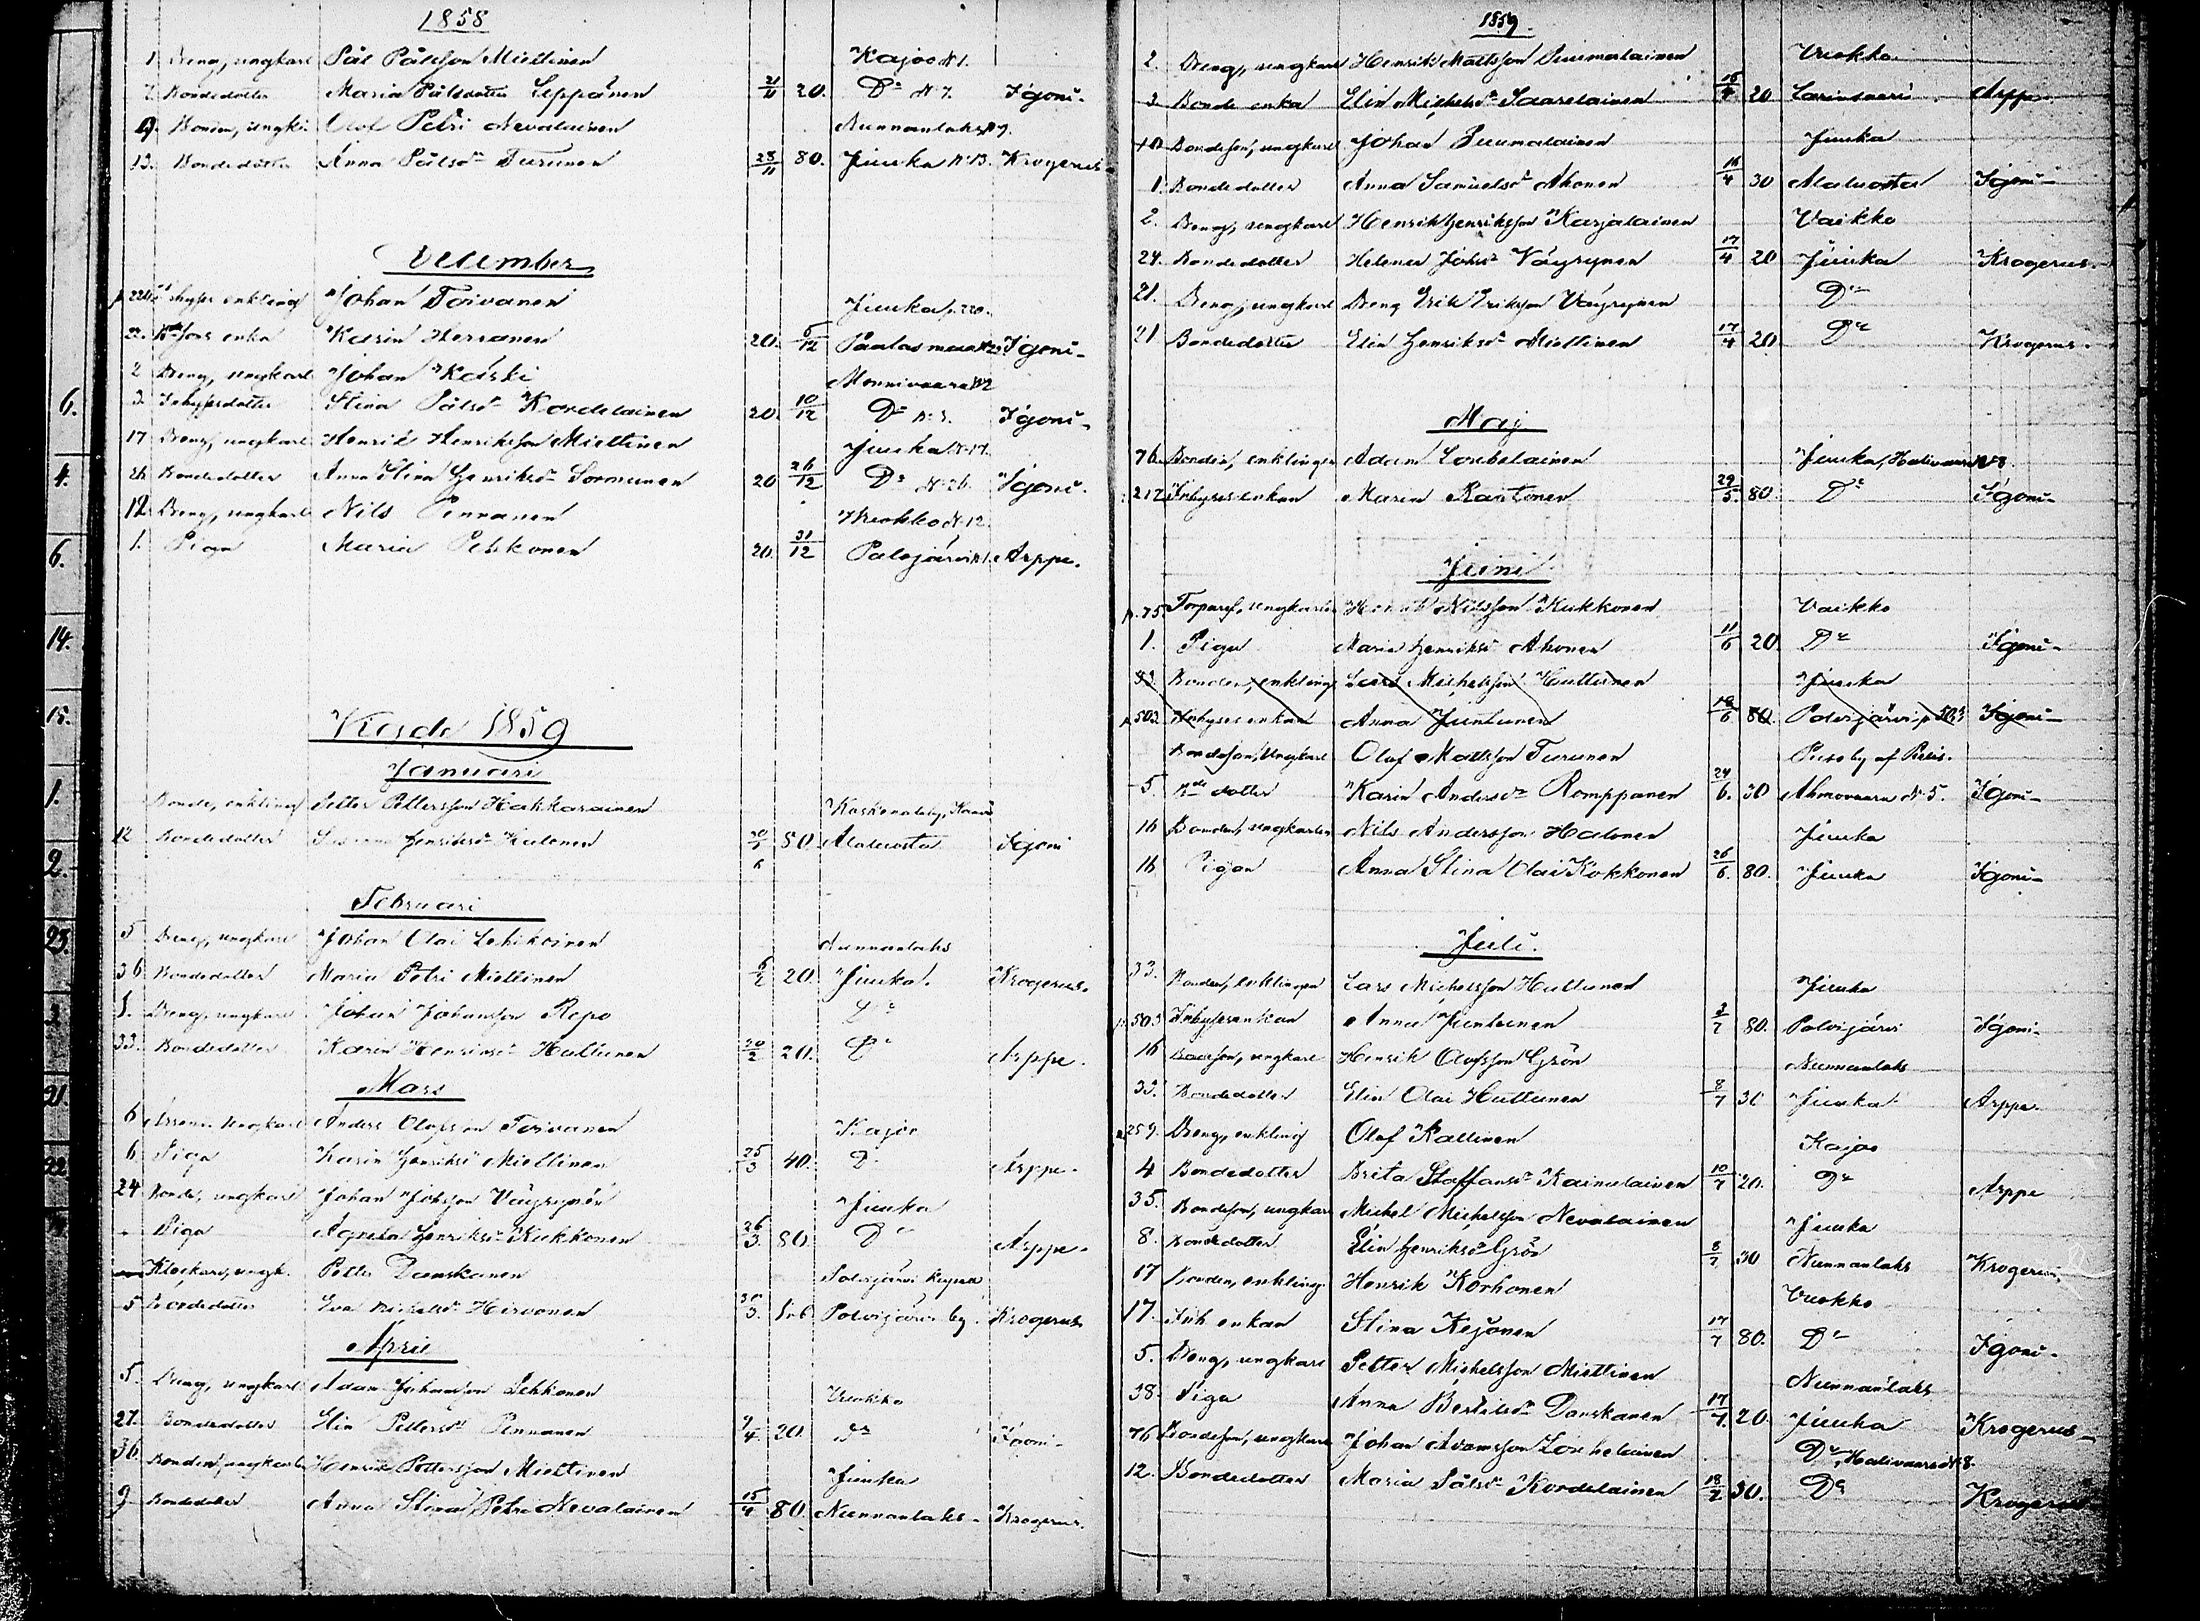 1858
1 Dreng, ungkarl Pål Pålsson Miettinen Kajoo N 1.
7 Bondedotter Maria Pålsdotter Leppänen 21/11 20. Do N 7. Igoni-
9 Bonden, ungk. Olof Petri Nevalainen Nunnanlaks N 9.
13. Bondedotter Anna Pålsdr Turunen 28/11 80. Juuka N 13. Krogerus-
December
p 220 Inhyses enkling Johan Toivanen Juuka p. 220.
enka Karin Herranen 20. 5/12 Igoni-
2 Dreng, ungkarl Johan Kaski Monnivaara N 2
3. Inhysesdotter Stina Pålsdr Kordelainen 20. 10/12 Do N 3. Igoni-
17 Dreng, ungkarl Henrik Henriksson Miettinen Juuka N 17.
26 Bondedotter Anna Stina Henriksdr Sormunen 20 26/12 Do N 26. Igoni-
12. Dreng, ungkarl Nils Pennanen Vuokko N 12.
1. Piga Maria Pehkonen 20. 31/12 Palojärvi N 1. Arppe.
Vigde 1859
Januari
Bonde, enkling Petter Pettersson Hakkarainen
12 Bondedotter Henriksdr Halonen 50. Alaluosta Igoni
Februari
5 Dreng, ungkarl Johan Olai Lehikoinen Nunnanlaks
36 Bondedotter Maria Petri Miettinen 6/2 20. Juuka. Krogerus.
8. Dreng, ungkarl Johan Johansson Repo Do
33. Bondedotter Karin Henriksdr Huttunen 20/2 20. Do Arppe.
Mars
6 ungkarl Anders Olofsson Toivanen Kajoo
6. Piga Karin Henriksdr Miettinen 25/3 40. D. Arppe.
24 Bonde, ungkarl Johan Johsson Väyrynen Juuka
- Piga Agneta Henriksdr Kukkonen 26/3. 80. Do Arppe.
Klockare, ungk. Petter Danskanen Polvijärvi Kapell
5 Bondedotter Eva Michelsdr Hirvonen Polvijärvi by. Krogerus
April
5. Dreng, ungkarl Adam Johansson Pehkonen Vuokko
27. Bondedotter Elin Pettersdr Pennanen 9/4 20. Do Igoni-
36. Bonden, ungkarl Henrik Pettersson Miettinen Juuka
9 Bondedotter Anna Stina Petri Nevalainen 15/4 80. Nunnanlaks- Krogerus.
6.
4.
6.
14.
15.
1.
2.
23.
3
21.
22
1859.
2. Dreng, ungkarl Henrik Mattsson Puumalainen Vuokko
3 Bonde enka Elin Michelsdr Saarelainen 16/4 20 Larinsaari Arppe.
10 Bondeson, ungkarl Johan Puumalainen Juuka
1. Bondedotter Anna Samuelsdr Ahonen 16/4 30 Alaluosta Igoni-
2. Dreng, ungkarl Henrik Henriksson Karjalainen Vaikko
24. Bondedotter Helena Johsdr Väyrynen 17/4 20 Juuka Krogerus.
21. Dreng, ungkarl Dreng Erik Eriksson Väyrynen Do
21 Bondedotter Elin Henriksdr Miettinen 17/4 20 Do Krogerus.
Maj
76. Bonden, enklingen Adam Loukelainen Juuka, Halivaara N 8.
212 Inhysesenkan Maria Rantonen 29/5. 80. Do Igoni-
Juni
p. 75 Torpares, ungkarlen Henrik Nilsson Kukkonen Vaikko
1. Piga Maria Henriksdr Ahonen 11/6 20. Do Igoni-
33. Bonden, enkling Lars Michelsson Huttunen Juuka
p 503. Inhysesenkan Anna Juntunen 18/6 80. Polvijärvi p 503 Igoni-
Bondeson, Ungkarl Olof Mattsson Turunen
5. Bde dotter Karin Andersdr Romppanen 24/6. 30 Ahmovaara N 5. Igoni-
16 Bonden, ungkarlen Nils Andersson Halonen Juuka
16 Pigan Anna Stina Olai Kokkonen 26/6. 80. Juuka Igoni-
Juli.
33. Bonden, enklingen Lars Michelsson Huttunen Juuka
p. 503 Inhysesenkan Anna Juntunen 3/7 80. Polvijärvi Igoni-
16 Bondeson, ungkarl Henrik Olofsson Grön Nunnanlaks
33. Bondedotter Elin Olai Huttunen 8/7 30 Juuka Arppe.
259. Dreng, enkling Olof Kallinen Kajoo
4 Bondedotter Brita Staffansdr Kainulainen 10/7 20. Do Arppe
35. Bondeson, ungkarl Michel Michelsson Nevalainen Juuka
8. Bondedotter Elin Henriksdr Grön 8/7 30 Nunnanlaks Krogerus.
17 Bonden, enkling. Henrik Korhonen Vuokko
17. Inh enkan Stina Kejonen 17/7 80. Do Igoni-
5. Dreng, ungkarl Petter Michelsson Miettinen Nunnanlaks
38. Piga Anna Bertilsdr Danskanen 17/7. 20. Juuka Krogerus-
76 Bondeson, ungkarl Johan Adamsson Loukelainen Do, Halivaara N 8.
12. Bondedotter Maria Pålsdr Kordelainen 30. Do Krogerus